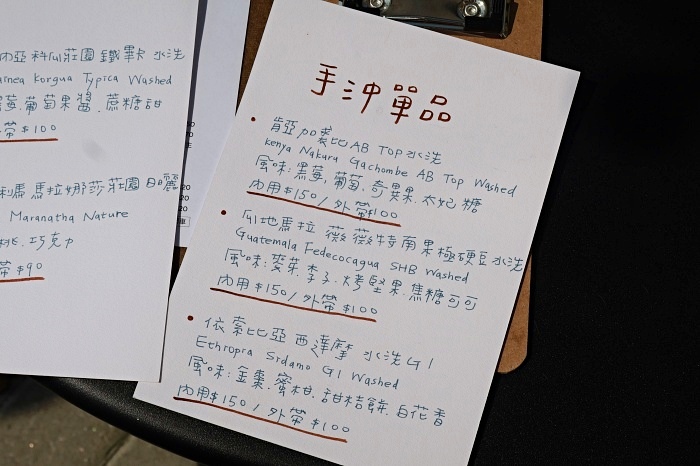 內亞 科勾莊園 鐵畢卡 水洗
Korgua Typica Washed
莓.葡萄果醬.蔗糖甜
帶$100
馬拉娜莎莊園 日曬
Maranatha Nature
桃.巧克力
帶$90
手沖單品
肯亞加裴比AB TOP水洗
Kenya Nakura Gachombe AB Top Washed
風味:黑莓.葡萄.奇異果.太妃糖
內用$150/外帶$100
瓜地馬拉 薇薇特南果極硬豆水洗
Guatemala Fedecocagua SHB Washed
風味:麥芽.李子.烤堅果.焦糖可可
內用$150/外帶$100
依索比亞 西達摩 水洗G1
Ethropra Srdamo G1 Washed
風味:金棗.蜜柑.甜桔餅.白花香
內用$150/外帶$100